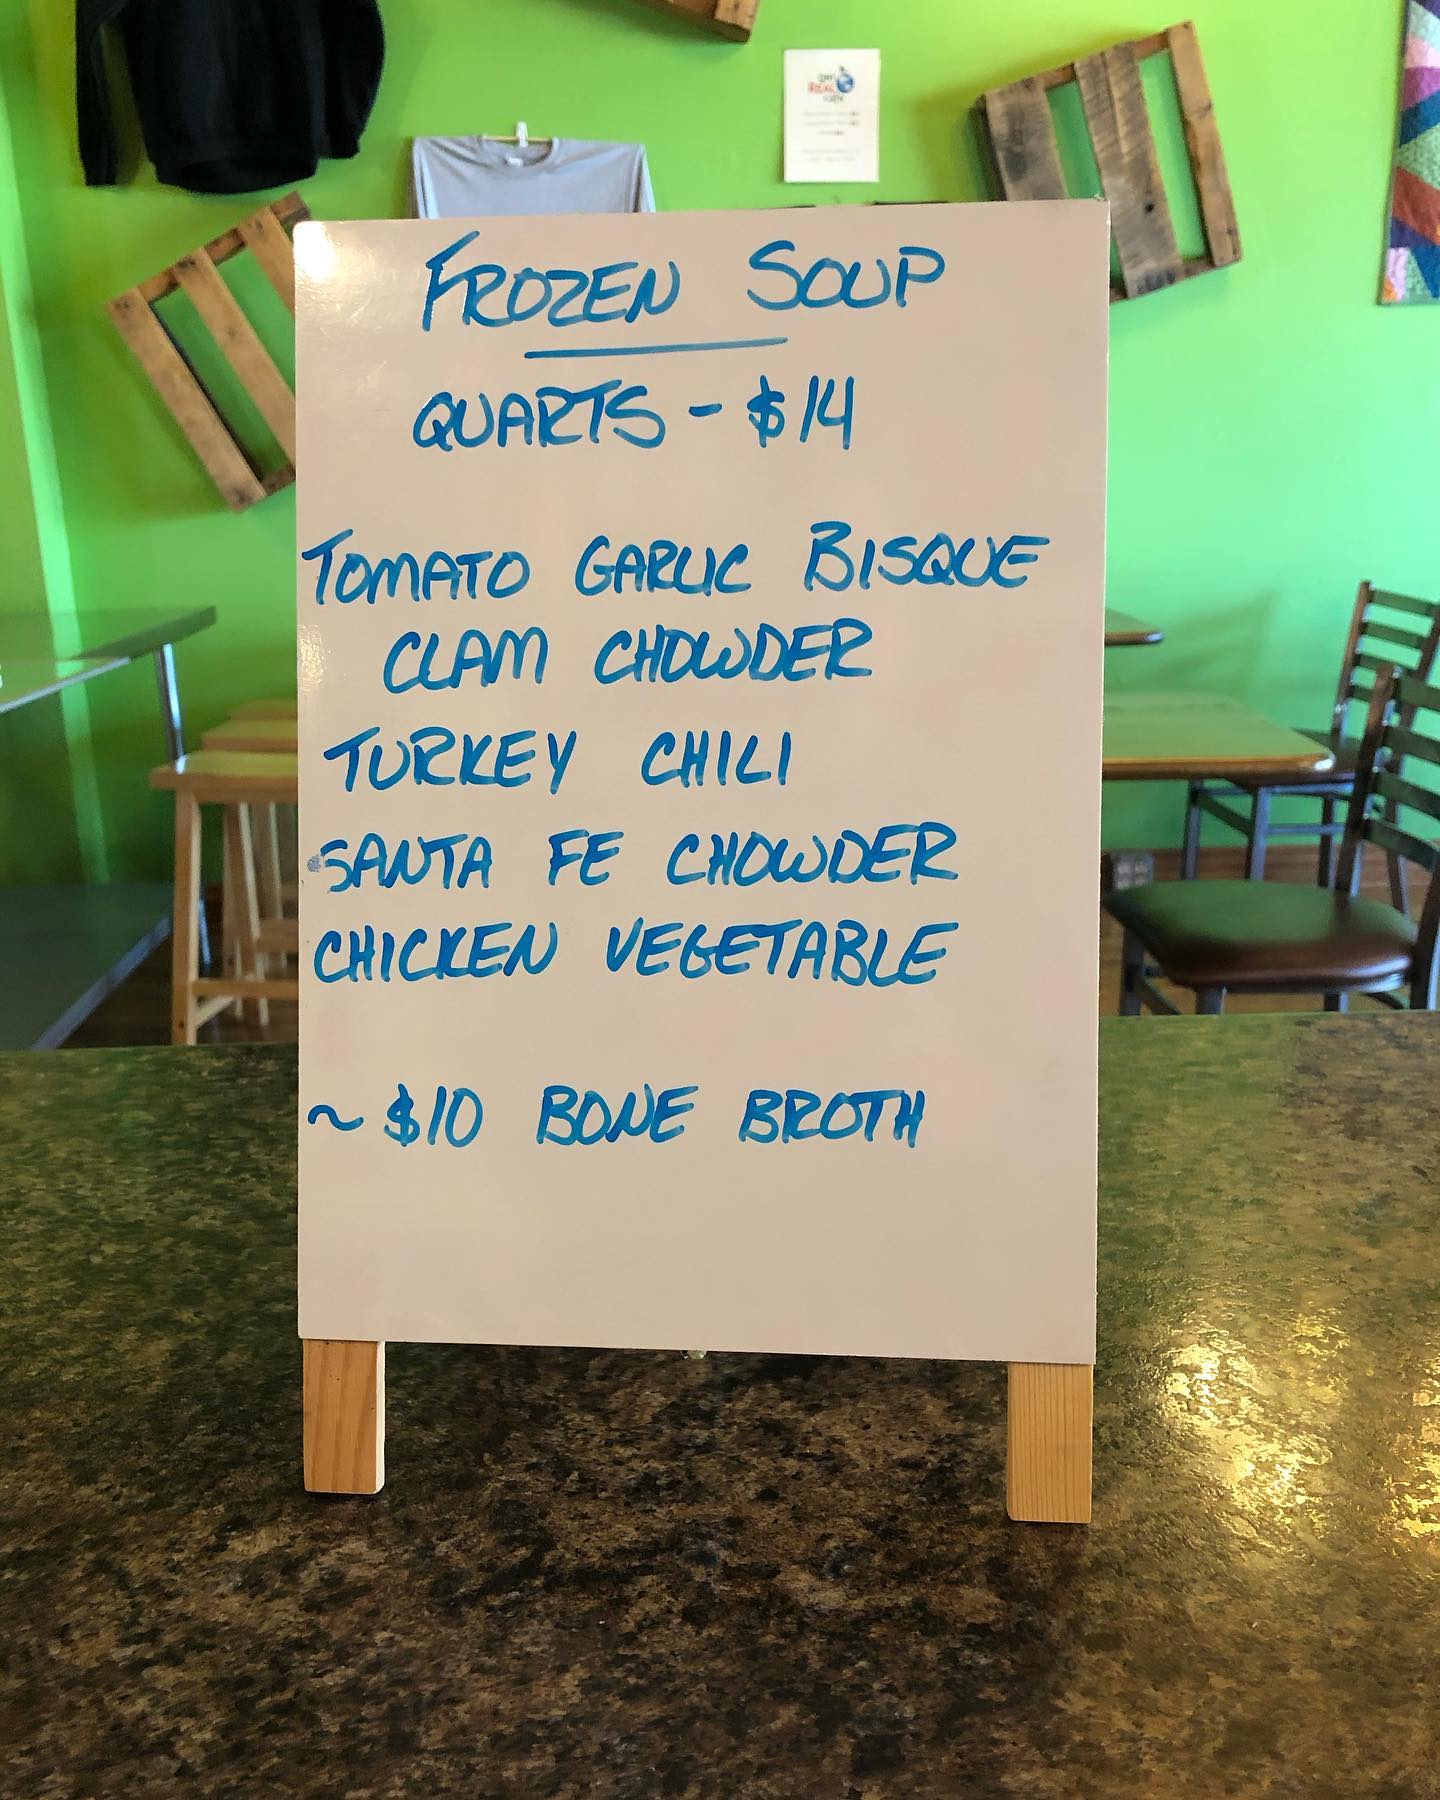 FROZEN SOUP
QUARTS - $14
TOMATO GARLIC BISQUE
CLAM CHOWDER
TURKEY CHILI
SANTA FE CHOWDER
CHICKEN VEGETABLE
~ $10 BONE BROTH